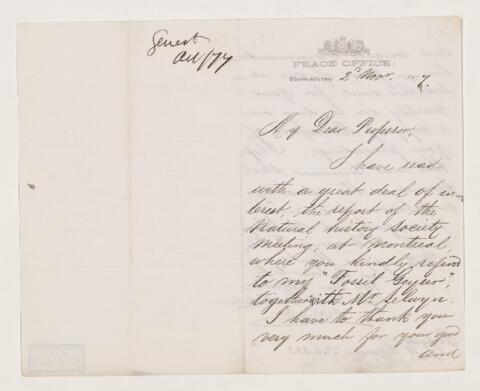 Genest
PEACE OFFICE;
Three-Rivers, 2d Novr. 7.
My Dear Professor,
I have read
with a great deal of in-
terest, the report of the
Natural history society
meeting, at Montreal,
where you kindly referred
to my "Fossil Geyser",
together with Mr Selwyn.
I have to thank you
very much for your good
and